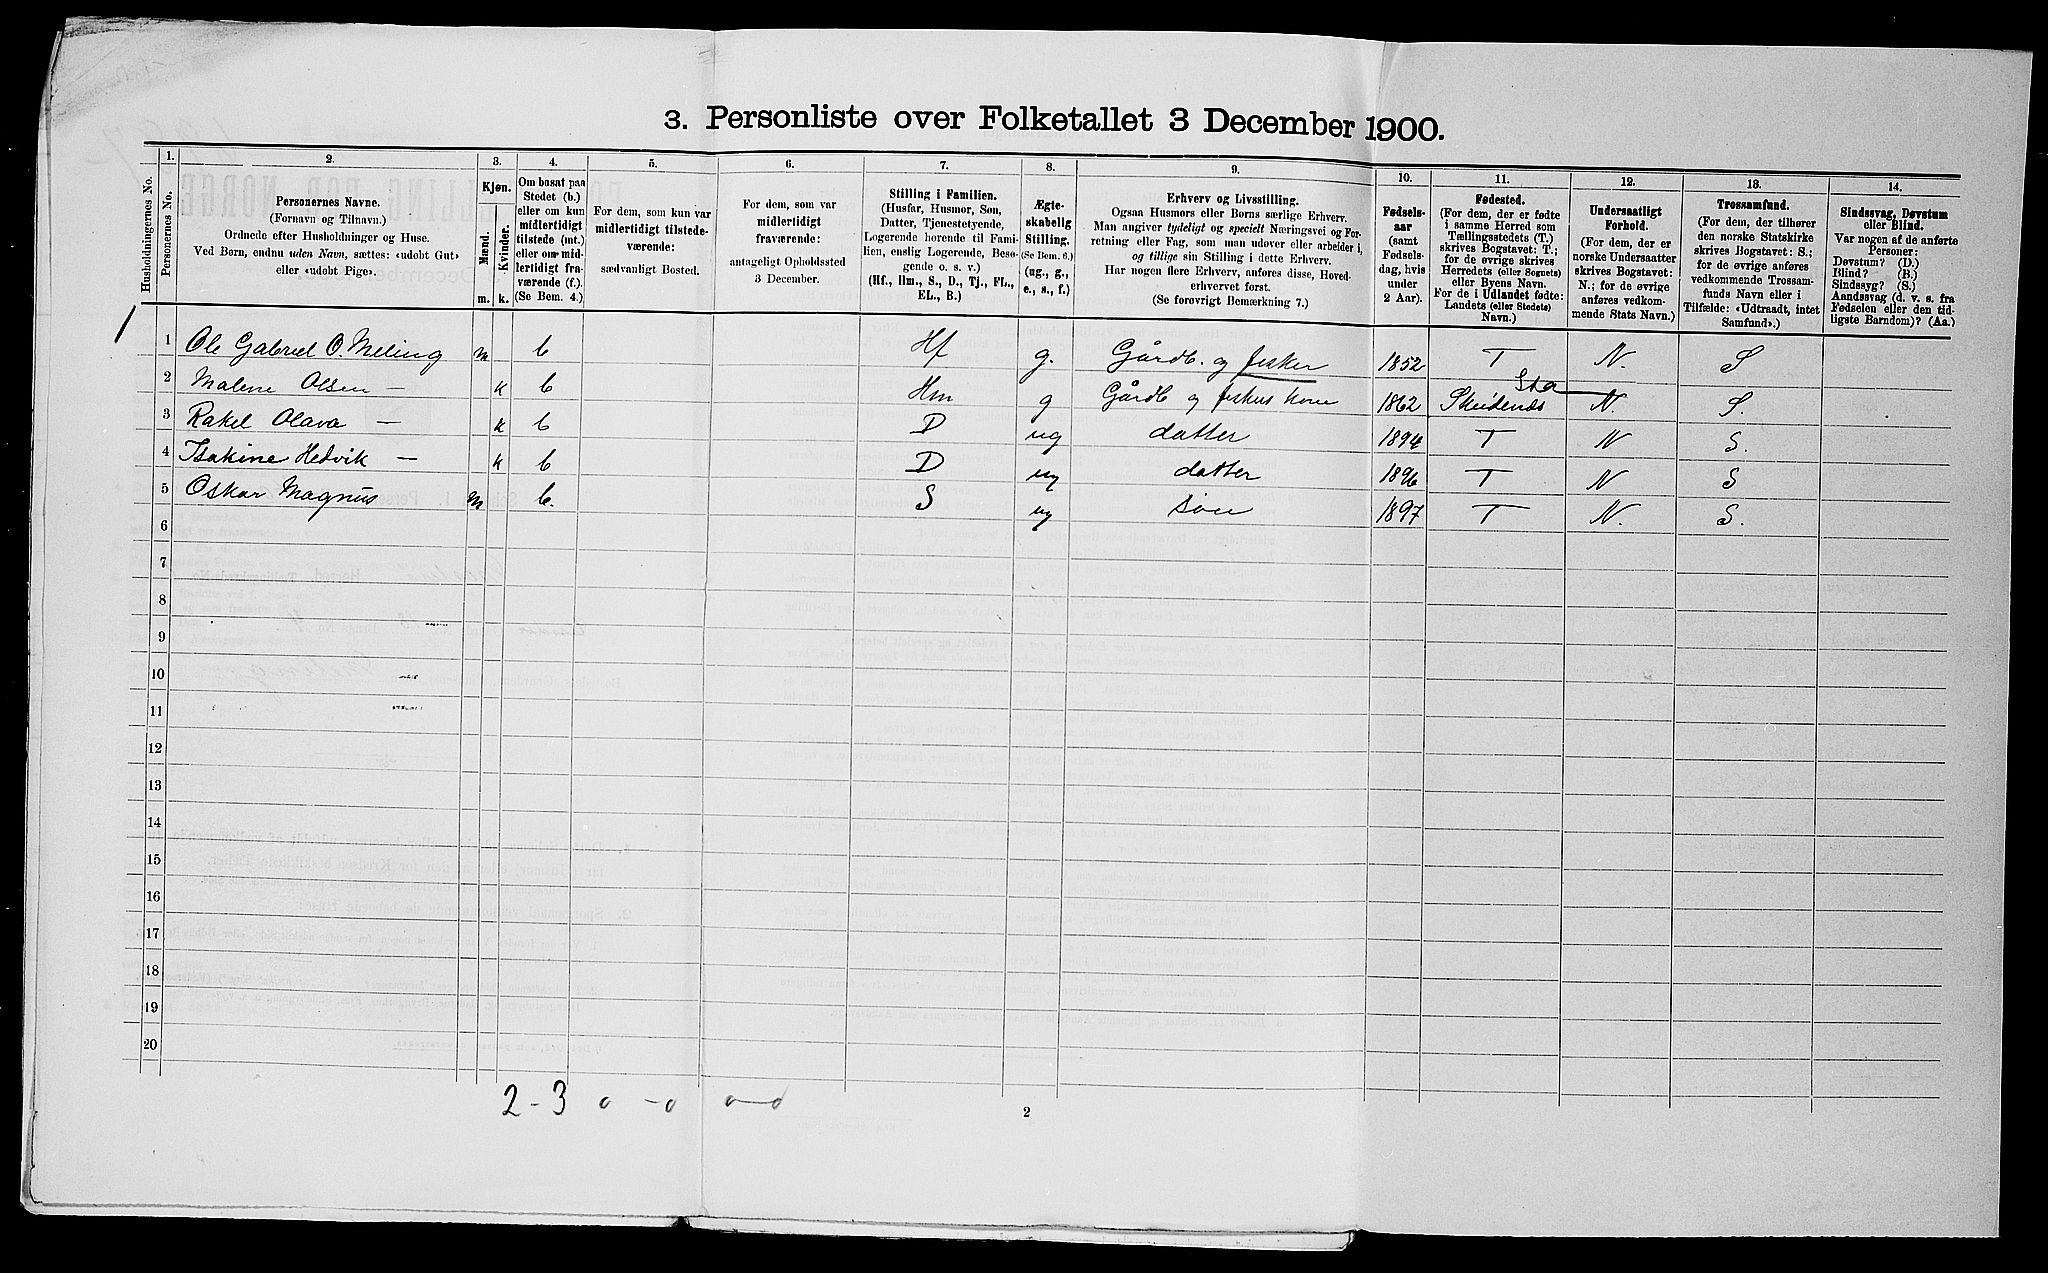 3. Personliste over Folketallet 3 December 1900.
Husholdningernes No.
1.
Personernes No.
2.
Personernes Navne.
(Fornavn og Tilnavn.)
Ordnede efter Husholdninger og Huse.
Ved Børn, endnu uden Navn, sættes: «udøbt Gut»
eller «udøbt Pige».
3.
Kjøn.
Mænd.
Kvinder.
m.
k.
4.
Om bosat paa
Stedet (b.)
eller om kun
midlertidigt
tilstede (mt.)
eller om mid-
lertidigt fra-
værende (f.).
(Se Bem. 4.)
5.
For dem, som kun var
midlertidigt tilstede-
værende:
sædvanligt Bosted.
6.
For dem, som var
midlertidigt
fraværende:
antageligt Opholdssted
3 December.
7.
Stilling i Familien.
(Husfar, Husmor, Søn,
Datter, Tjenestetyende,
Logerende hørende til Fami-
lien, enslig Logerende, Besø-
gende o. s. v.)
(Hf., Hm., S., D., Tj., FL.,
EL., B.)
8.
Ægte-
skabelig
Stilling.
(Se Bem. 6.)
(ug., g.,
e., s., f.)
9.
Erhverv og Livsstilling.
Ogsaa Husmors eller Børns særlige Erhverv.
Man angiver tydeligt og specielt Næringsvei og For-
retning eller Fag, som man udøver eller arbeider i,
og tillige sin Stilling i dette Erhverv.
Har nogen flere Erhverv, anføres disse, Hoved-
erhvervet først.
(Se forøvrigt Bemærkning 7.)
10.
Fødsels-
aar
(samt
Fødsels-
dag, hvis
under
2 Aar).
11.
Fødested.
(For dem, der er fødte
i samme Herred som
Tællingsstedets (T.)
skrives Bogstavet: T.;
for de øvrige skrives
Herredets (eller Sognets)
eller Byens Navn.
For de i Udlandet fødte:
Landets (eller Stedets)
Navn.)
12.
Undersaatligt
Forhold.
(For dem, der er
norske Undersaatter
skrives Bogstavet:
N.; for de øvrige
anføres vedkom-
mende Stats Navn.)
13.
Trossamfund.
(For dem, der tilhører
den norske Statskirke
skrives Bogstavet: S.;
for de øvrige anføres
vedkommende Trossam-
funds Navn eller i
Tilfælde: «Udtraadt, intet
Samfund».)
14.
Sindssvag, Døvstum
eller Blind.
Var nogen af de anførte
Personer:
Døvstum? (D.)
Blind? (B.)
Sindssyg? (S.)
Aandssvag (d. v. s. fra
Fødselen eller den tid-
ligste Barndom)? (Aa.)
1 Ole Gabriel O. Meling m b Hf g. Gårdb. og fisker 1852 T N. S
Sta
2 Malene Olsen — k b Hm g Gårdb og fiskers kone 1862 Skudenæs N. S.
3 Rakel Olava — k b D ug datter 1894 T N S.
4 Isakine Hedvik — k b D ug datter 1896 T N S
5 Oskar Magnus m b. S ug søn 1897 T N. S.
6
7
8
9
10
11
12
13
14
15
16
17
18
19
20
2 - 3 0 - 0 0 - 0
2